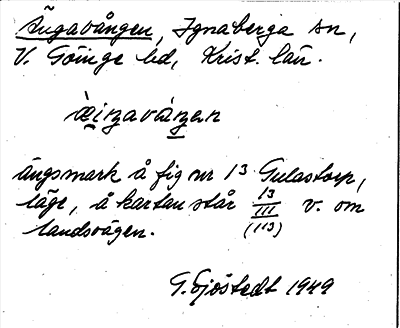 Ängavången, Ignaberga sn,
V. Göinge hd, Krist. län.
ängsmark å fig nr 13 Gulastorp,
läge, å kartan står 13/III v. om
landsvägen. (113)
G. Sjöstedt 1949